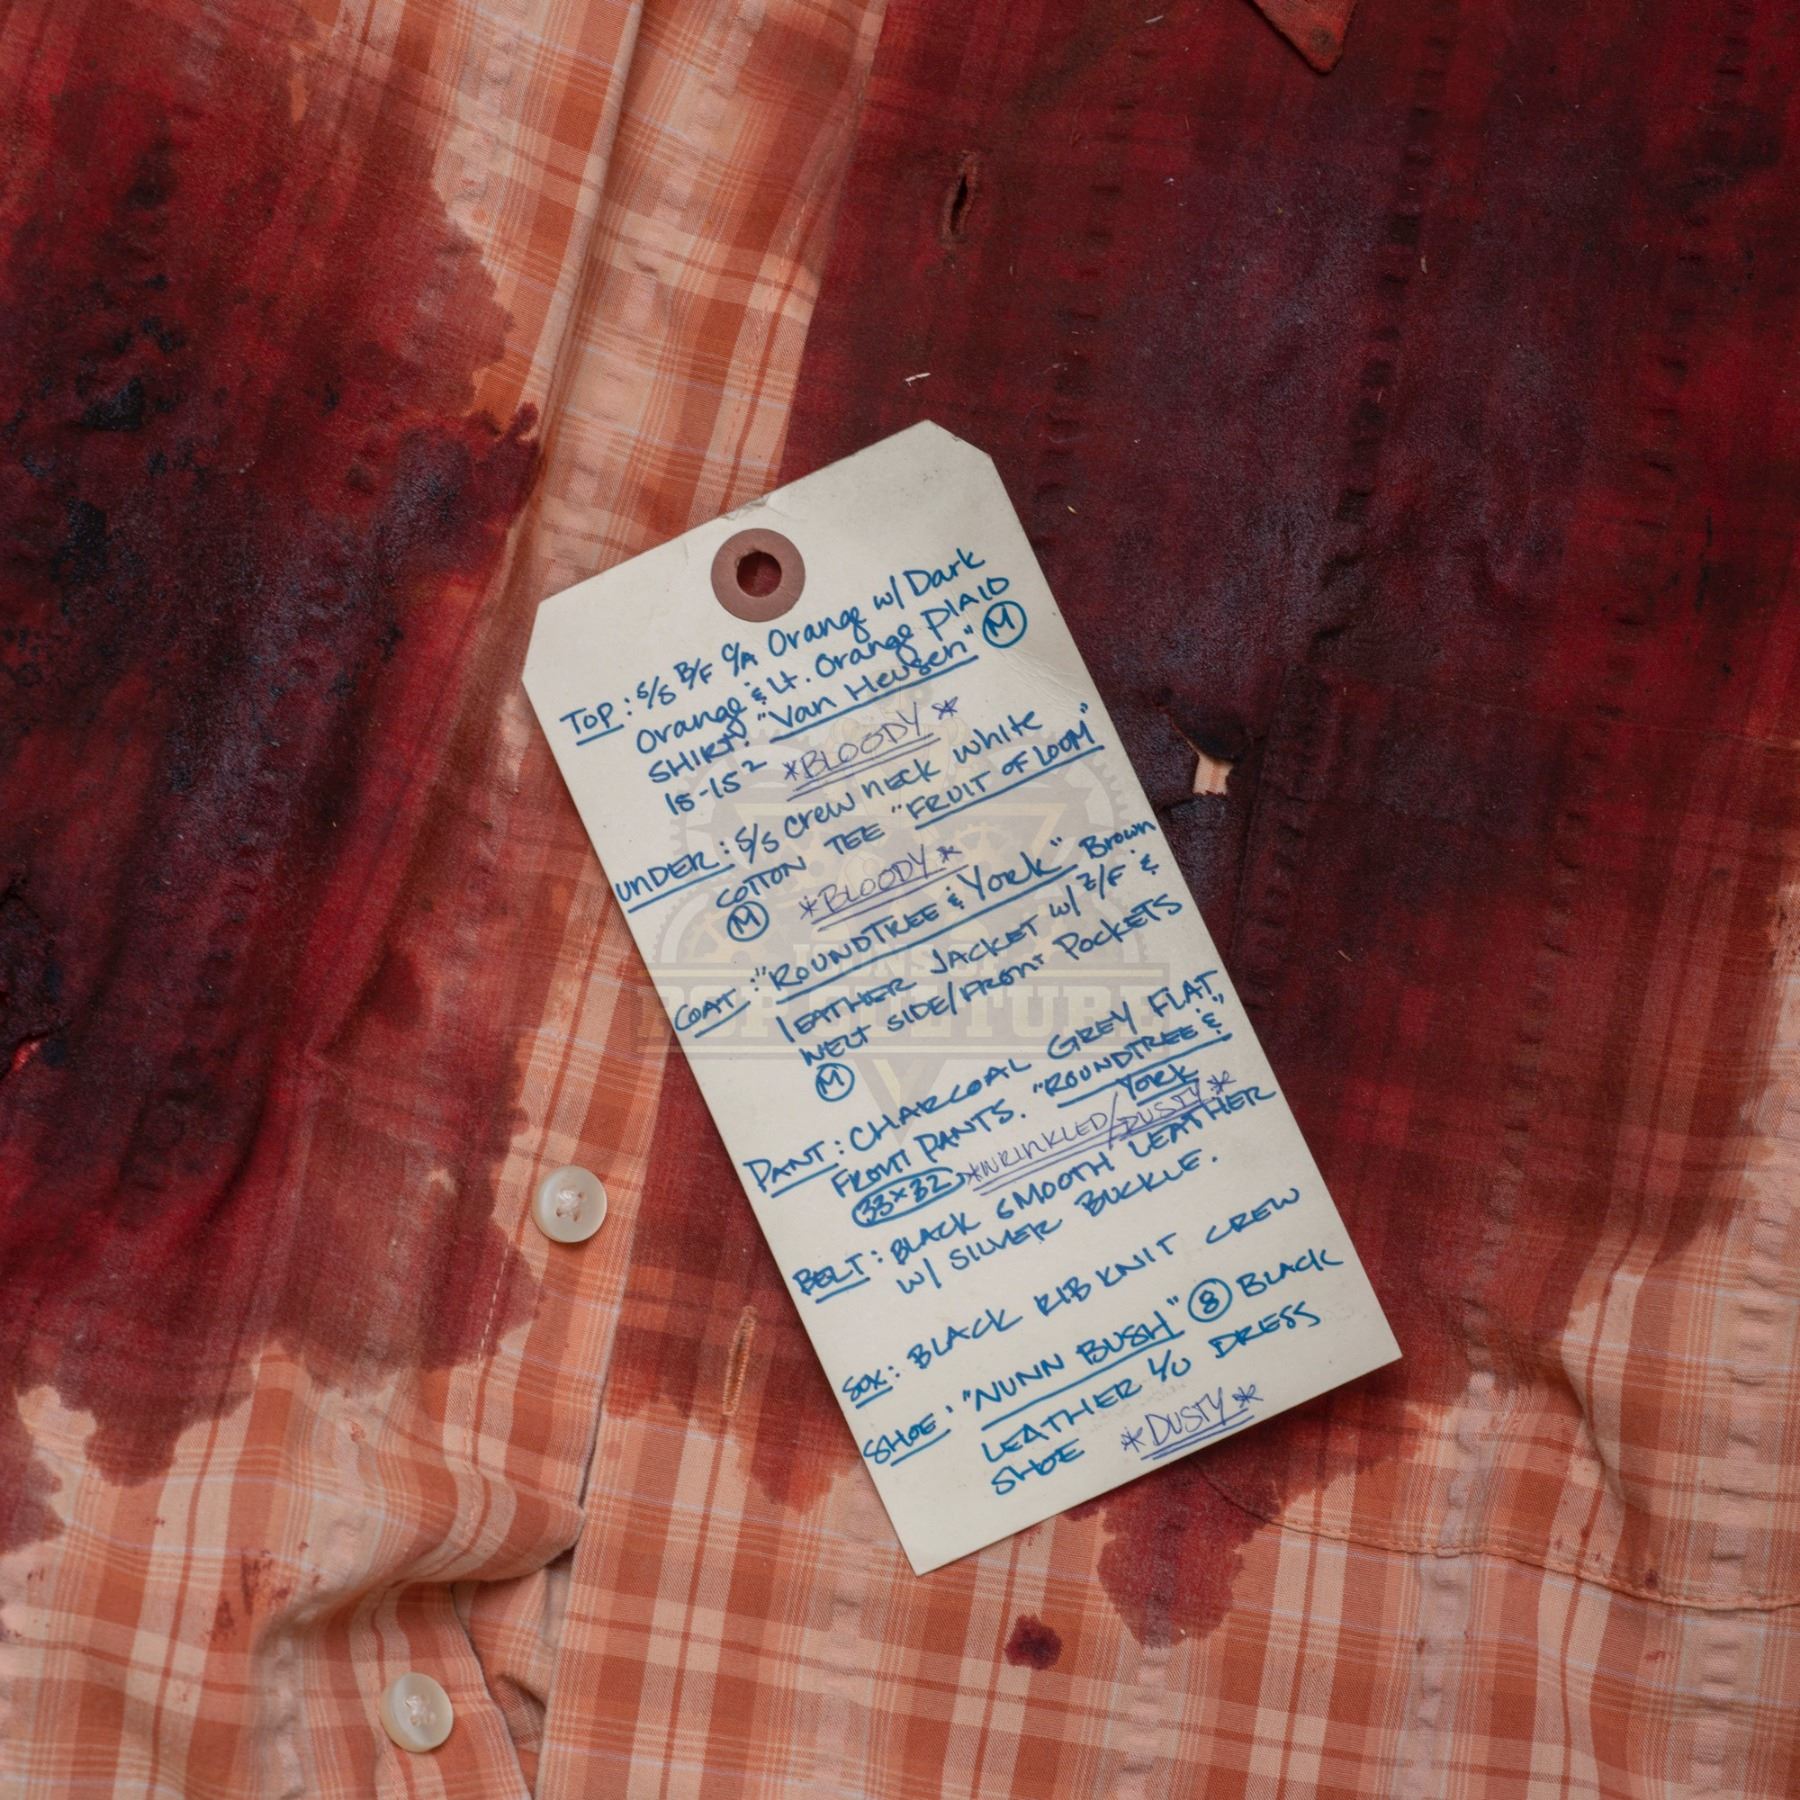 TOP: S/S B/F C/A Orange w/ Dark
Orange & Lt. Orange PLAID
SHIRT. "Van Heusen" M
15-15² *BLOODY*
UNDER: S/S Crew neck white
COTTON TEE "FRUIT OF LOOM"
M *BLOODY*
COAT: "ROUNDTREE & YORK" Brown
LEATHER JACKET w/ Z/F &
WELT SIDE/FRONT POCKETS
M
PANT: CHARCOAL GREY FLAT
FRONT PANTS. "ROUNDTREE &
YORK"
33x32 *WRINKLED/DUSTY*
BELT: BLACK SMOOTH LEATHER
w/ SILVER BUCKLE.
SOX: BLACK RIB KNIT CREW
SHOE: "NUNN BUSH" 8 BLACK
LEATHER L/U DRESS
SHOE *DUSTY*
POP CULTURE